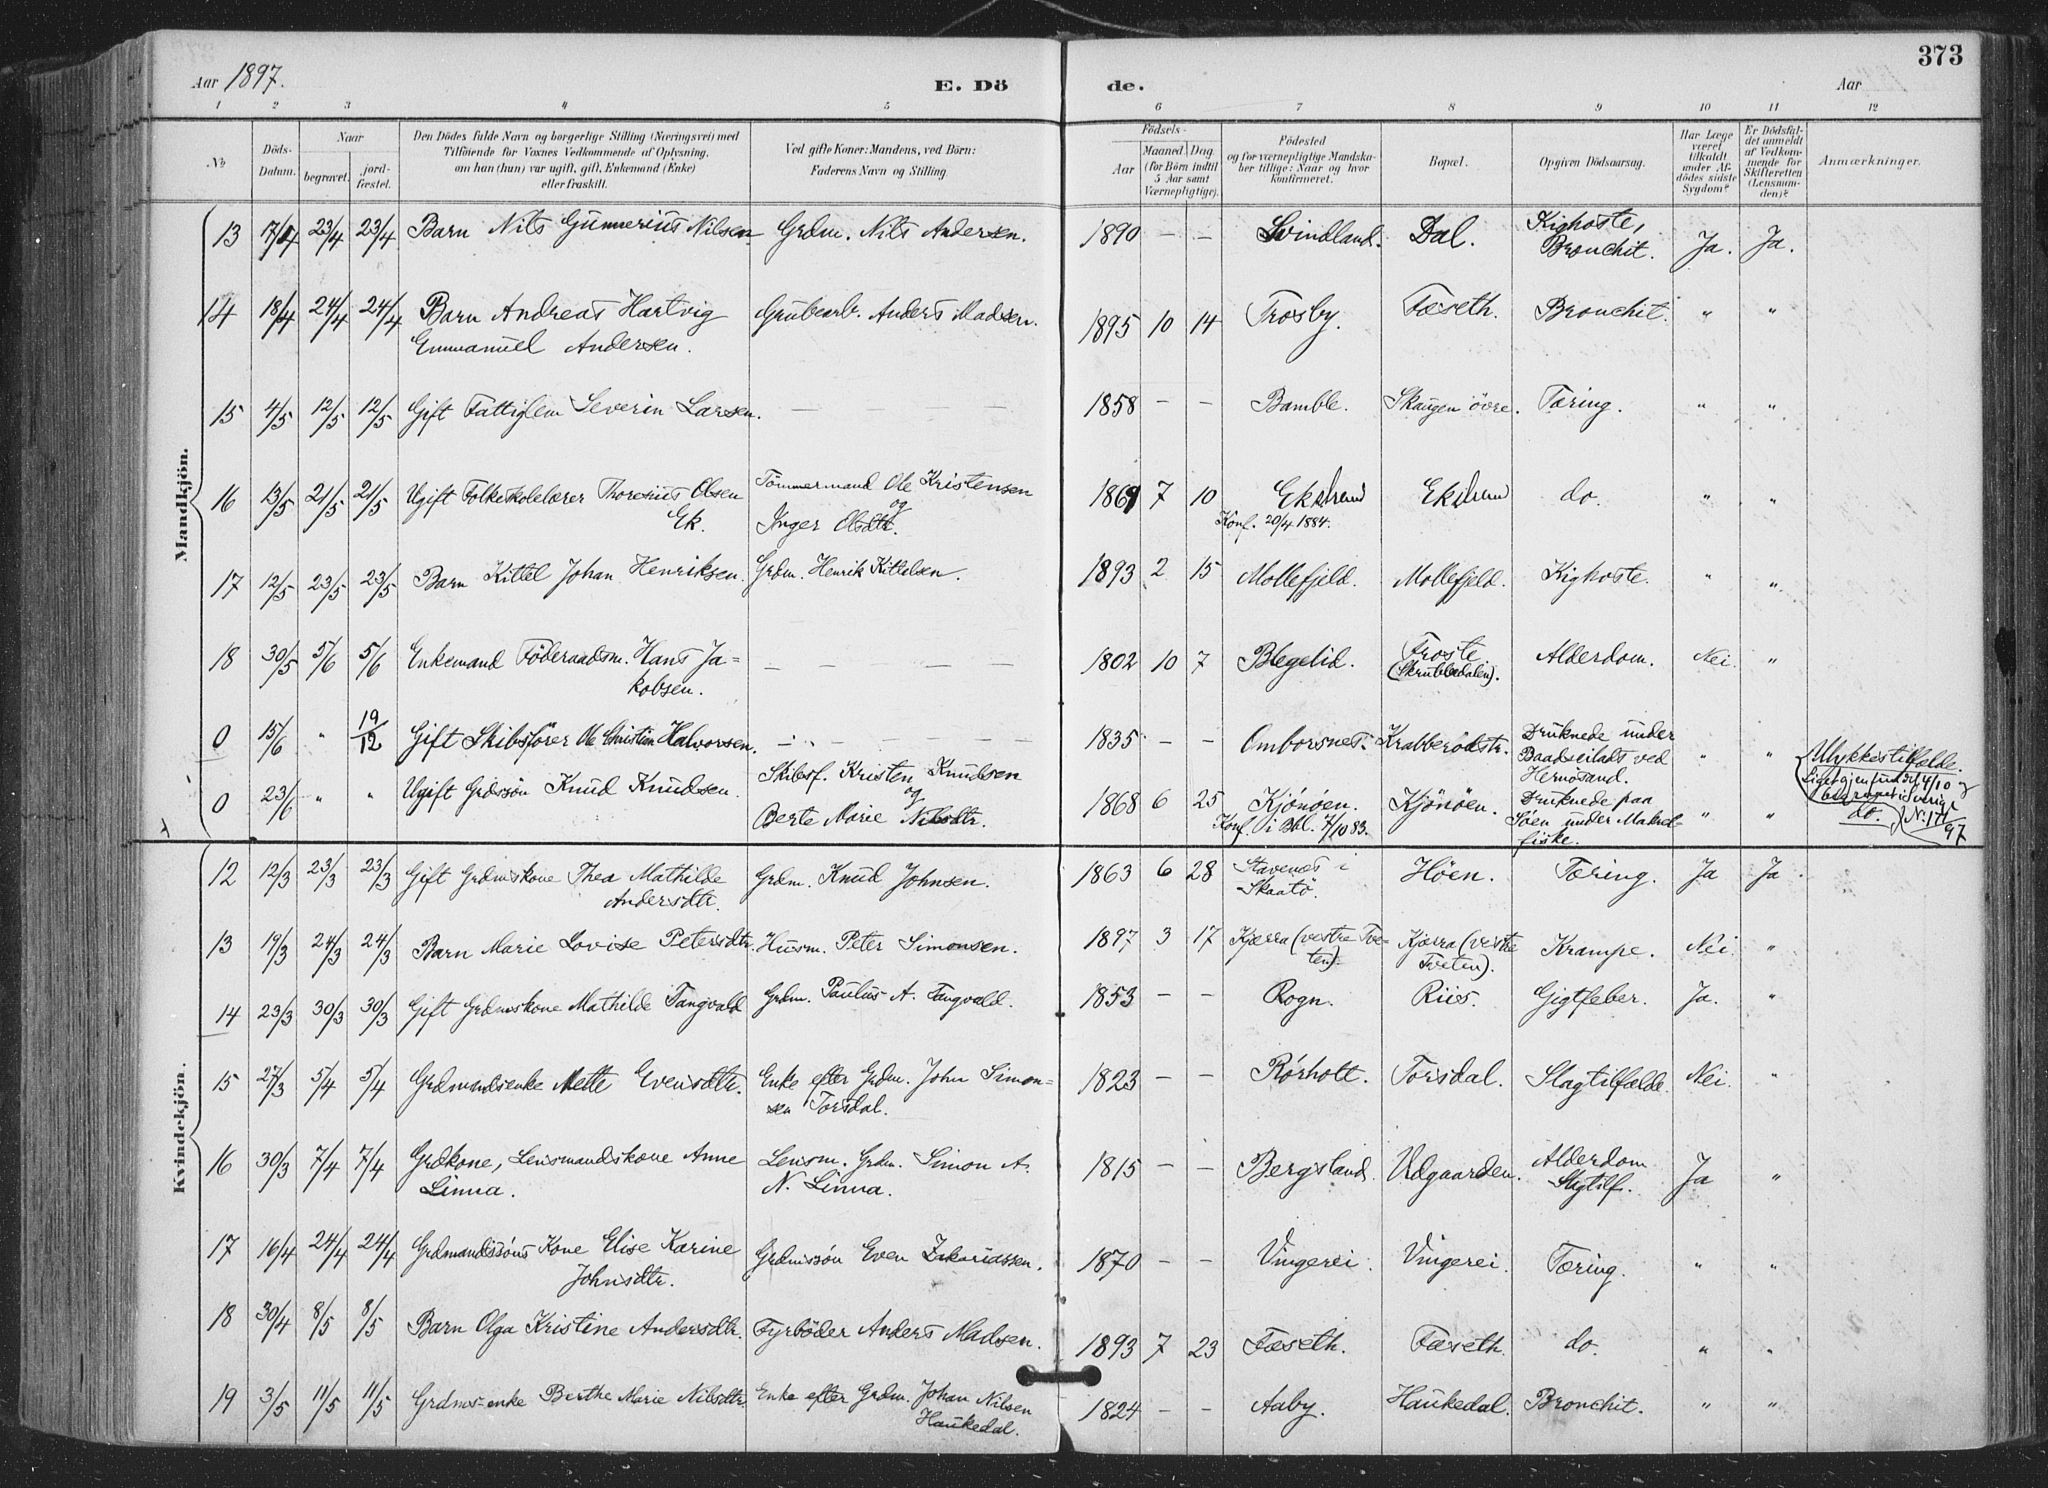 373
Aar 1897. E. Dö de. Aar
1 2 3 4 5 6 7 8 9 10 11 12
No
Döds-Datum.
Naar
begravet.
jord-fæstet.
Den Dödes fulde Navn og borgerlige Stilling (Næringsvei) med
Tilföiende for Voxnes Vedkommende af Oplysning,
om han (hun) var ugift, gift, Enkemand (Enke)
eller fraskilt.
Ved gifte Koner: Mandens, ved Börn:
Faderens Navn og Stilling.
Födsels-
Aar
Maaned Dag
(for Börn indtil
5 Aar samt
Værnepligtige).
Födested
og for værnepligtige Mandska-
ber tillige: Naar og hvor
konfirmeret.
Bopæl.
Opgiven Dödsaarsag.
Har Læge
været
tilkaldt
under Af-
dödes sidste
Sygdom?
Er Dödsfal-
det anmeldt
af Vedkom-
mende for
Skifteretten
(Lensman-
den)?
Anmærkninger.
Mandkjön.
13 17/4 23/4 23/4 Barn Nils Gunnerius Nilsen Grdm. Nils Andersen. 1890 — — Svindland. Dal. Kighoste, Bronchit. Ja. Ja.
14 18/4 24/4 24/4 Barn Andreas Hartvig Grubearb. Anders Madsen. 1895 10 14 Trosby. Fæseth. Bronchit. " "
Emmanuel Andersen.
15 4/5 12/5 12/5 Gift Fattiglem Severin Larsen. — — — 1858 — — Bamble. Skaugen övre. Tæring. " "
16 13/5 21/5 21/5 Ugift Folkeskolelærer Thoresius Olsen Tömmermand Ole Kristensen 1869 7 10 Ekstrand Ekstrand do. " "
Ek. og Inger Olsdtr. Konf. 20/4 1884.
17 12/5 23/5 23/5 Barn Kittel Johan Henriksen. Grdm. Henrik Kittelsen. 1893 2 15 Mollefjeld. Mollefjeld. Kighoste. " "
18 30/5 5/6 5/6 Enkemand Föderaadsm. Hans Ja- — — — — 1802 10 7 Blegelid. Froste Alderdom. Nei. "
kobsen. (Skrubbedalen).
0 15/6 " 19/12 Gift Skibsförer Ole Christian Halvorsen. — — — — 1835 — — Omborsnes. Krabberödstr. Druknede under
Baadseilads ved " " Ulykkestilfælde.
Hernösand.
0 23/6 " " Ugift Grdssön Knud Knudsen. Skibsf. Kristen Knudsen 1868 6 25 Kjönöen. Kjönöen. Druknede paa " " do.
og Berte Marie Nilsdtr. Konf. i Bbl. 7/10 83. Söen under Makrel-
fiske.
Kvindekjön.
12 12/3 23/3 23/3 Gift Grdmskone Thea Mathilde Grdm. Knud Johnsen. 1863 6 28 Stavenes i Höen. Tæring. Ja Ja.
Andersdtr. Skaatö.
13 19/3 24/3 24/3 Barn Marie Lovise Petersdtr. Husm. Peter Simonsen. 1897 3 17 Kjærra (vestre Tve- Kjærra (vestre Krampe. Nei. "
ten). Tveten).
14 23/3 30/3 30/3 Gift Grdmskone Mathilde Tangvald Grdm. Paulus A. Tangvald. 1853 — — Rogn. Riis. Gigtfeber. Ja. "
15 27/3 5/4 5/4 Grdmandsenke Mette Evensdtr. Enke efter Grdm. John Simon- 1823 — — Rörholt. Torsdal. Slagtilfælde. Nei. "
sen Torsdal.
16 30/3 7/4 7/4 Grdkone, Lensmandskone Anne Lensm. Grdm. Simon A. 1815 — — Bergsland. Udgaarden. Alderdom Ja "
Linna. N. Linna. Slagtilf.
17 16/4 24/4 24/4 Grdmandssöns Kone Elise Karine Grdmssön Even Zakariassen. 1870 — — Vingerei. Vingerei. Tæring. " "
Johnsdtr.
18 30/4 8/5 8/5 Barn Olga Kristine Andersdtr. Fyrböder Anders Madsen. 1893 7 23 Fæseth. Fæseth. do. " "
19 3/5 11/5 11/5 Grdms-enke Berthe Marie Nilsdtr. Enke efter Grdm. Johan Nilsen 1824 — — Aaby. Haukedal. Bronchit. " "
Haukedal.